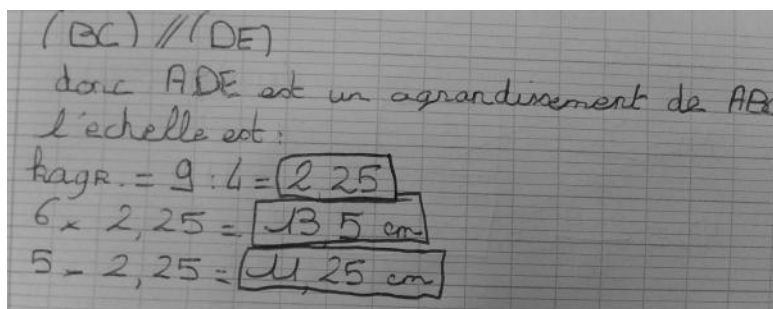 (BC) // (DE)
donc ADE est un agrandissement de ABC
l'echelle est :
kagR. = 9 : 4 = 2,25
6 x 2,25 = 13,5 cm
5 - 2,25 = 11,25 cm